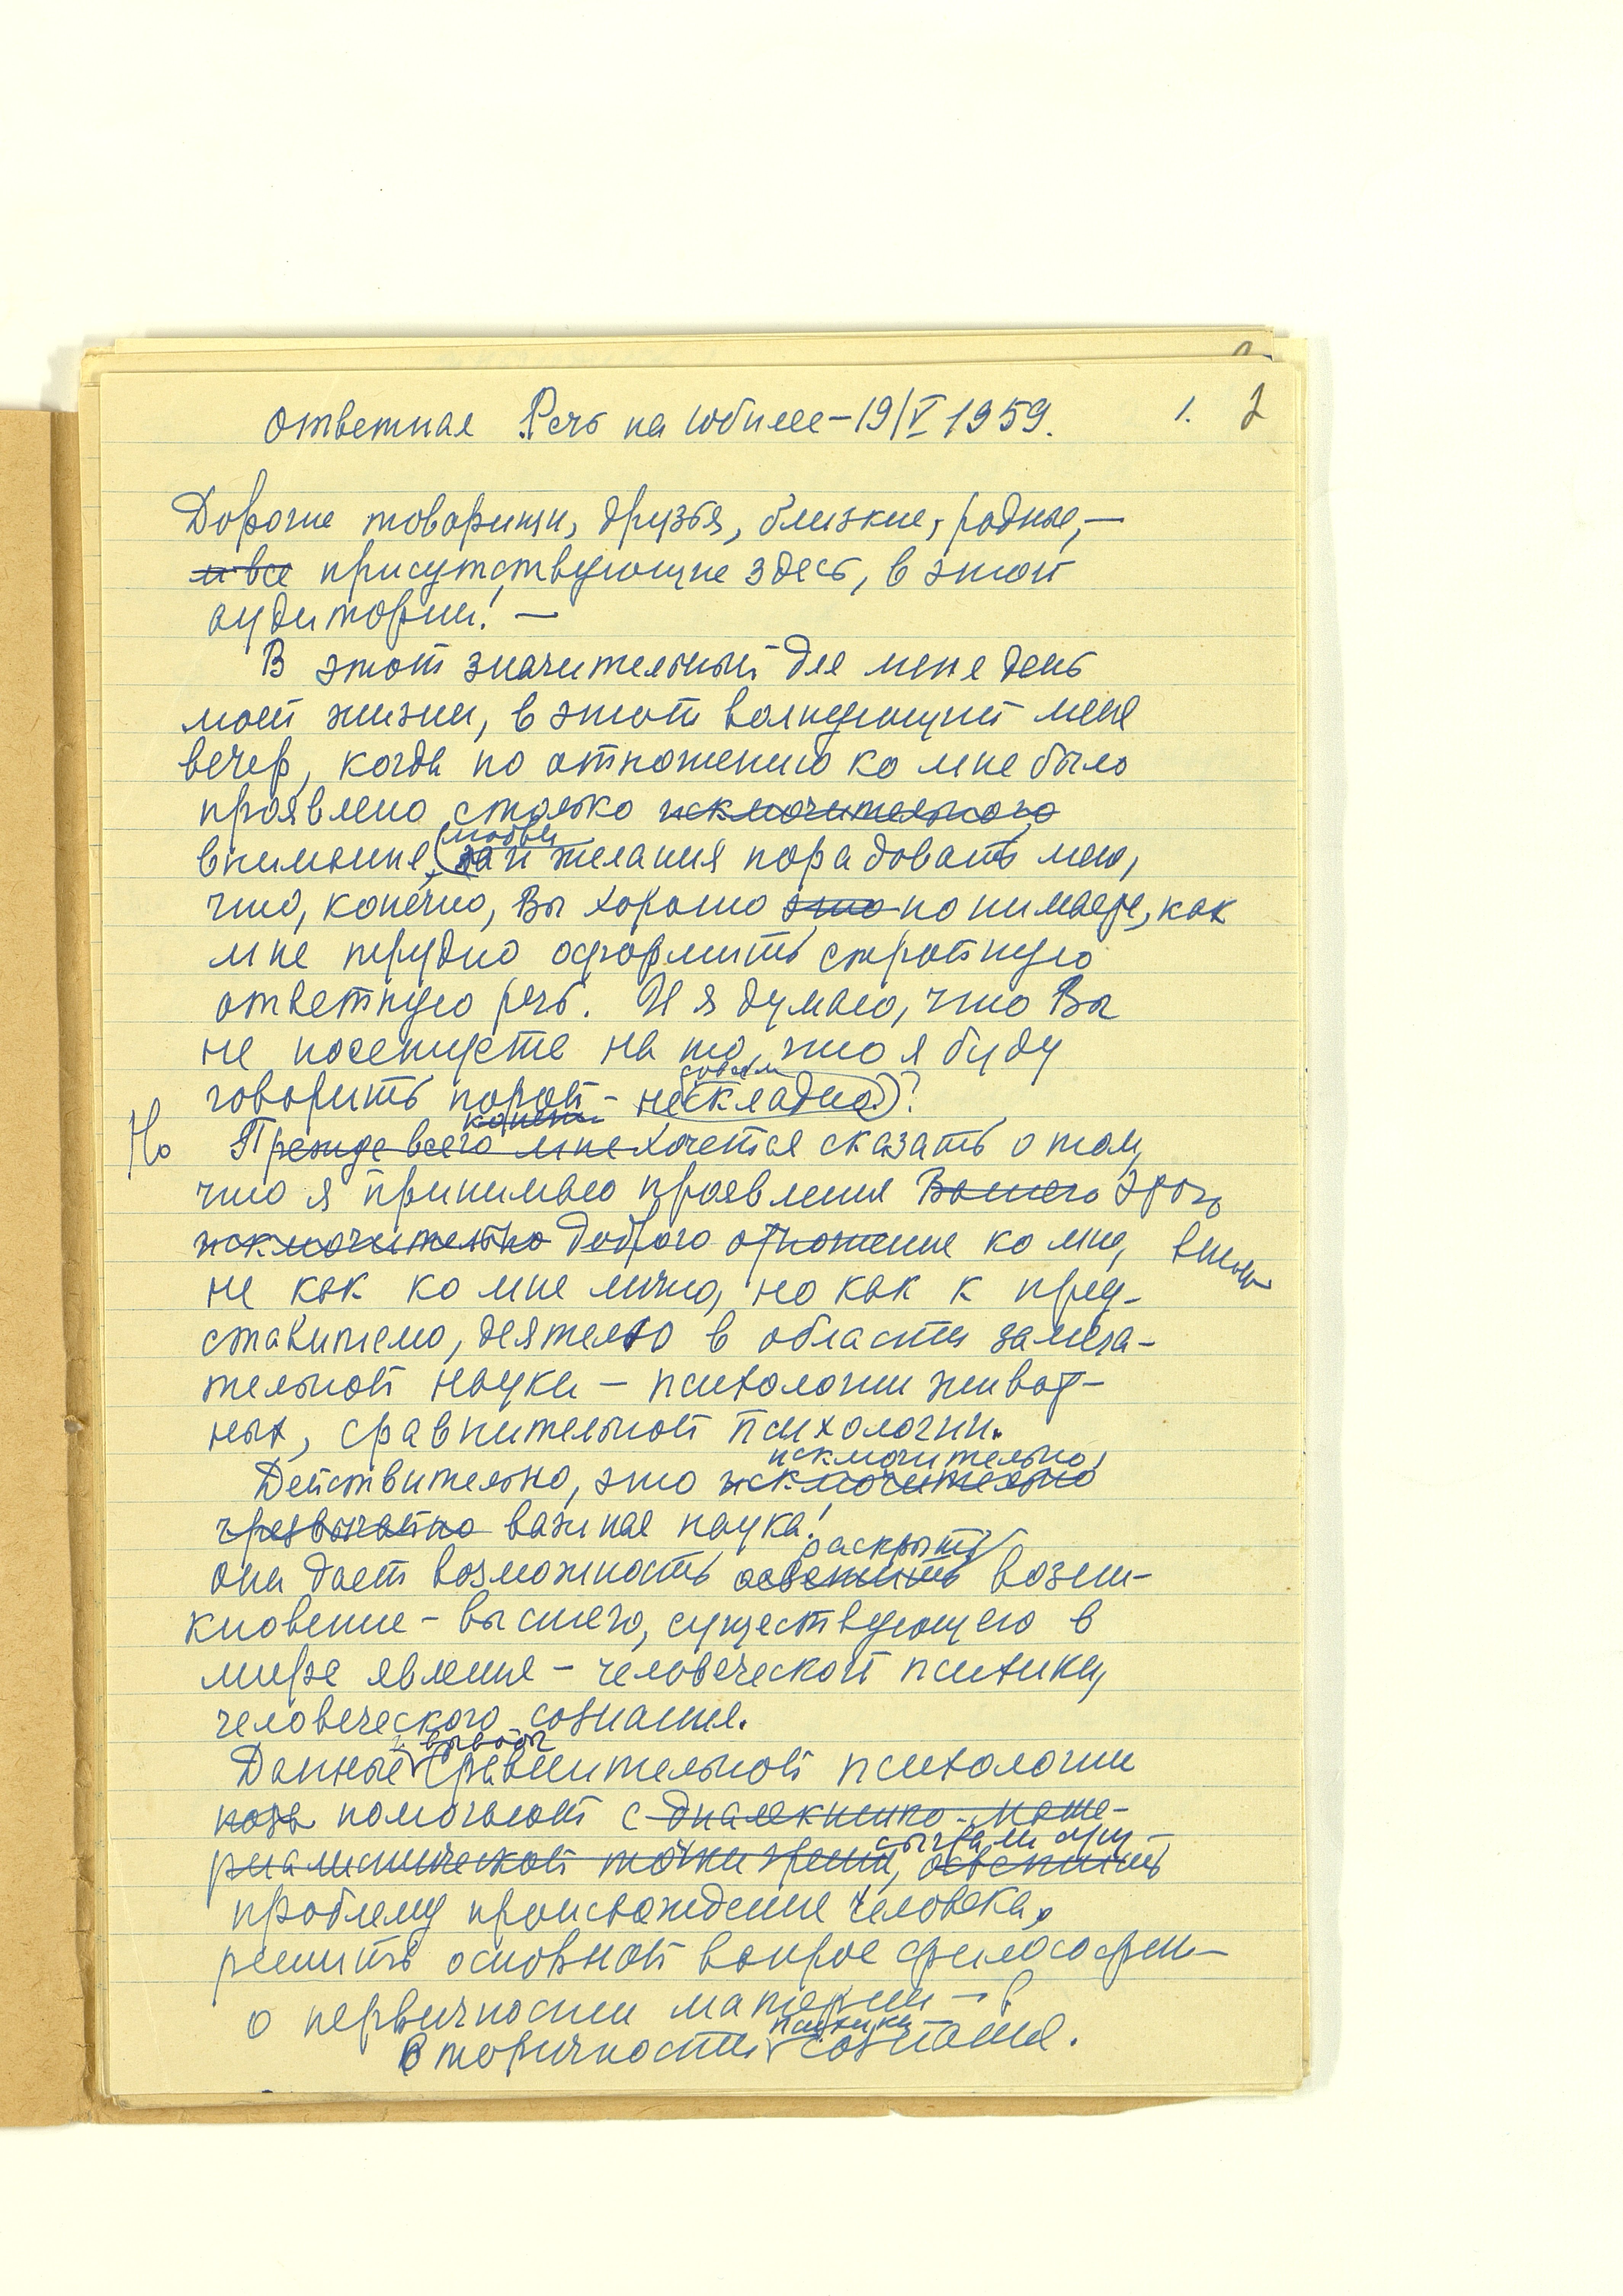 Ответная Речь на Юбилее – 19/V 1959. 1. 2
Дорогие товарищи, друзья, близкие, родные, –
и все присутствующие здесь, в этой
аудитории! –
В этот значительный для меня день
моей жизни, в этот волнующий меня
вечер, когда по отношению ко мне было
проявлено столько исключительного
любви
внимания, и желания порадовать меня,
что, конечно, Вы хорошо это понимаете, как
мне трудно оформить стройную
ответную речь. И я думаю, что Вы
не посетуете на то, что я буду
совсем
говорить порой – нескладно?
конечно
Но Прежде всего мне хочется сказать о том,
что я принимаю проявления Вашего этого
исключительно доброго отношения ко мне,
не как ко мне лично, но как к пред-
ставителю, деятелю в области замеча-
тельной науки – психологии живот-
ных, сравнительной психологии.
исключительно
Действительно, это исключительно
чрезвычайно важная наука!
раскрыть
она дает возможность осветить возни-
кновение – высшего, существующего в
мире явления – человеческой психики,
человеческого сознания.
и выводы
Данные сравнительной психологии
помогают с диалектико-мате-
риалистической точки зрения, осветить
проблему происхождения человека,
решить основной вопрос философии –
о первичности материи – и
психики
вторичности сознания.